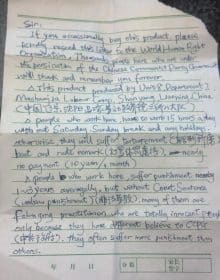 Sir:
If you occasionally buy this product, please
kindly resend this letter to the World Human Right
Organization. Thousands people here who are under
the persicution of the Chinese Communist Party Government
will thank and remember you forever.
This product produced by Unit 8, Department 2,
Masanjia Labour Camp, Shenyang, Liaoning, China
(中国,辽宁,沈阳,马三家
people who work here, have to work 15 hours a day
with out Saturday, Sunday break and any holidays,
otherwise, they will suffer torturement
beat and rude remark nearly
no payment (10 yuan / 1 month)
people who work here, suffer punishment nearly
1~3 years averagely, but without Court Sentence
(unlaw punishment) many of them are
Falun gong practitioner, who are totally innocent people
only because they have different believe to CCPG
they often suffer more punishment than
others.
年 月 日